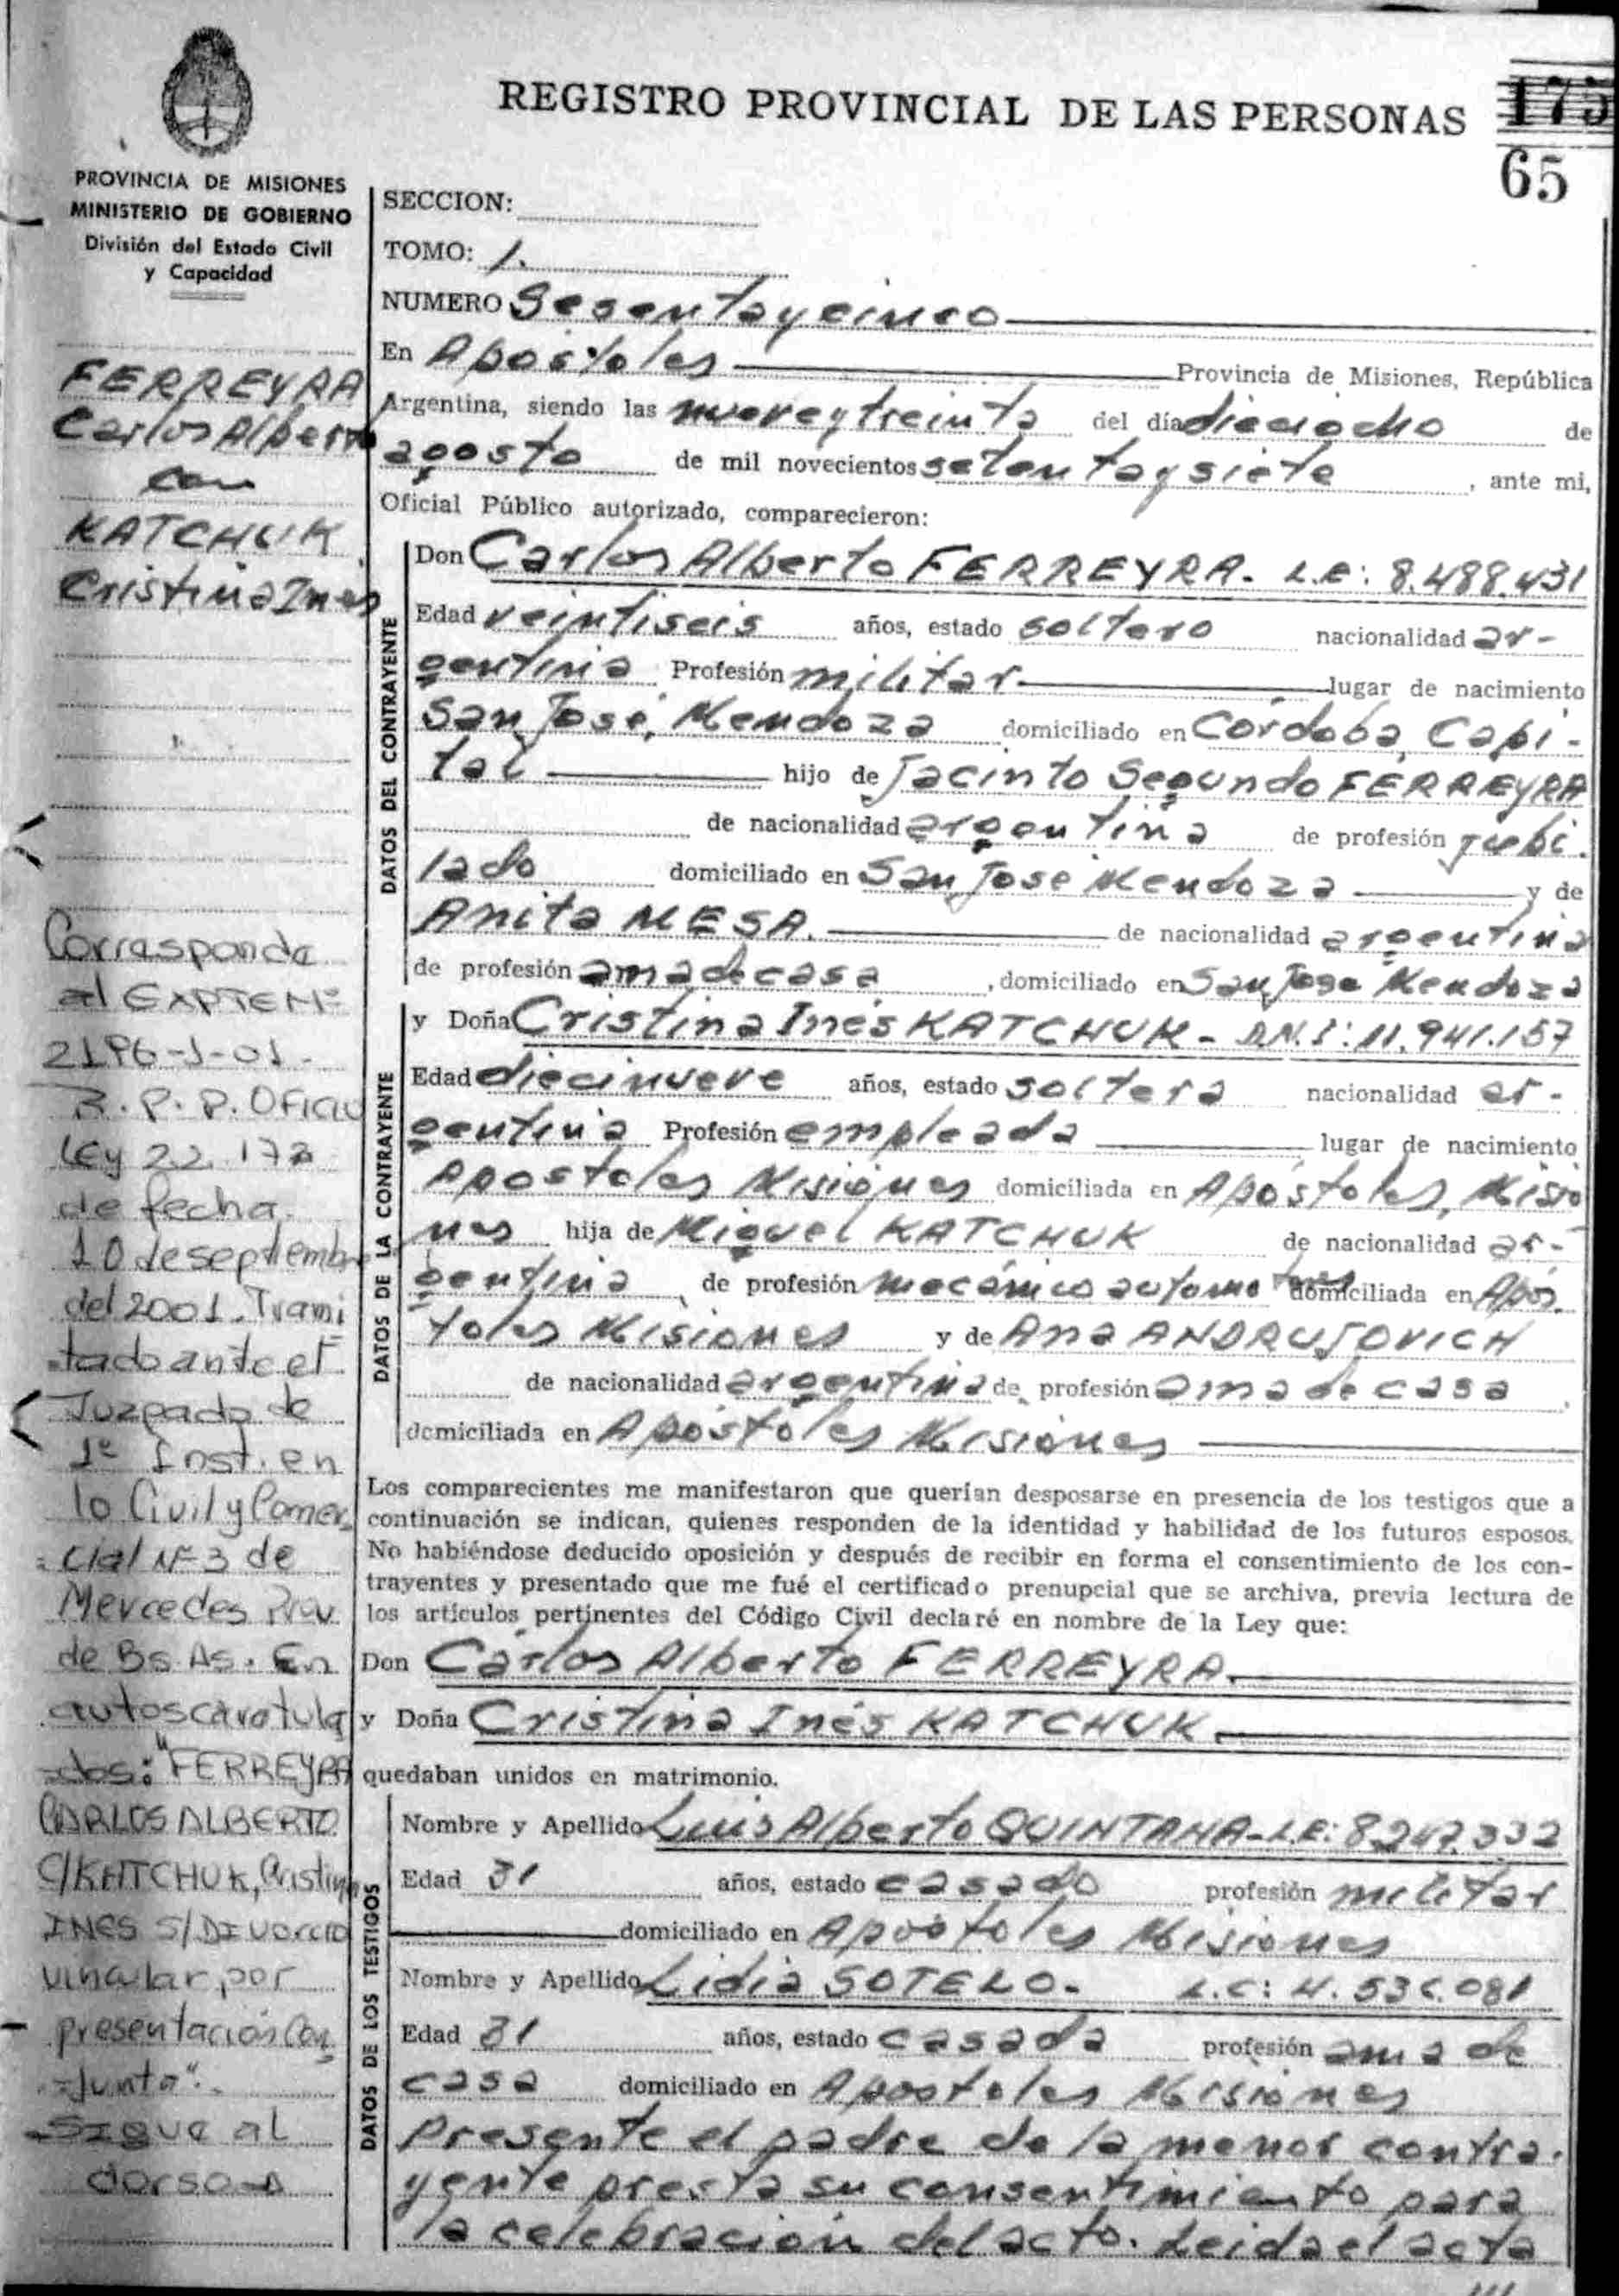 REGISTRO PROVINCIAL DE LAS PERSONAS
175
65
PROVINCIA DE MISIONES
MINISTERIO DE GOBIERNO
División del Estado Civil
y Capacidad
FERREYRA
Carlos Alberto
con
KATCHUK
Cristina Inés
Corresponde
al EXPTE Nº
2196-J-01.-
R.P.P. OFICIO
Ley 22.172
de fecha
10 de septiembre
del 2001. Trami
tado ante el
Juzgado de
1º Inst. en
lo Civil y Comer
cial Nº 3 de
Mercedes Prov.
de Bs. As. En
autos caratula
dos: "FERREYRA
CARLOS ALBERTO
C/KATCHUK, Cristina
INES S/DIVORCIO
vincular, por
presentación Con
junta".
Sigue al
dorso
SECCION:
TOMO: 1.
NUMERO Sesenta y cinco
En Apóstoles Provincia de Misiones, República
Argentina, siendo las nueve y treinta del día dieciocho de
agosto de mil novecientos setenta y siete, ante mi,
Oficial Público autorizado, comparecieron:
DATOS DEL CONTRAYENTE
Don Carlos Alberto FERREYRA. L.E: 8.488.431
Edad veintiseis años, estado soltero nacionalidad ar-
gentina Profesión militar lugar de nacimiento
San José, Mendoza domiciliado en Córdoba, Capi-
tal hijo de Jacinto Segundo FERREYRA
de nacionalidad argentina de profesión jubi-
lado domiciliado en San José Mendoza y de
Anita MESA. de nacionalidad argentina
de profesión ama de casa, domiciliado en San José Mendoza
DATOS DE LA CONTRAYENTE
y Doña Cristina Inés KATCHUK - D.N.I: 11.941.157
Edad diecinueve años, estado soltera nacionalidad ar-
gentina Profesión empleada lugar de nacimiento
Apostoles Misiones domiciliada en Apóstoles, Misio
nes hija de Miguel KATCHUK de nacionalidad ar-
gentina, de profesión mecánico automotores domiciliada en Apos-
toles Misiones y de Ana ANDRUJOVICH
de nacionalidad argentina de profesión ama de casa
domiciliada en Apóstoles Misiones
Los comparecientes me manifestaron que querían desposarse en presencia de los testigos que a
continuación se indican, quienes responden de la identidad y habilidad de los futuros esposos.
No habiéndose deducido oposición y después de recibir en forma el consentimiento de los con-
trayentes y presentado que me fué el certificado prenupcial que se archiva, previa lectura de
los artículos pertinentes del Código Civil declaré en nombre de la Ley que:
Don Carlos Alberto FERREYRA.
y Doña Cristina Inés KATCHUK.
quedaban unidos en matrimonio.
DATOS DE LOS TESTIGOS
Nombre y Apellido Luis Alberto QUINTANA - L.E: 8.247.332
Edad 31 años, estado casado profesión militar
domiciliado en Apóstoles Misiones
Nombre y Apellido Lidia SOTELO. L.C: 4.536.081
Edad 31 años, estado casada profesión ama de
casa domiciliado en Apostoles Misiones
Presente el padre de la menor contra-
yente presta su consentimiento para
la celebración del acto. Leida el acta
///